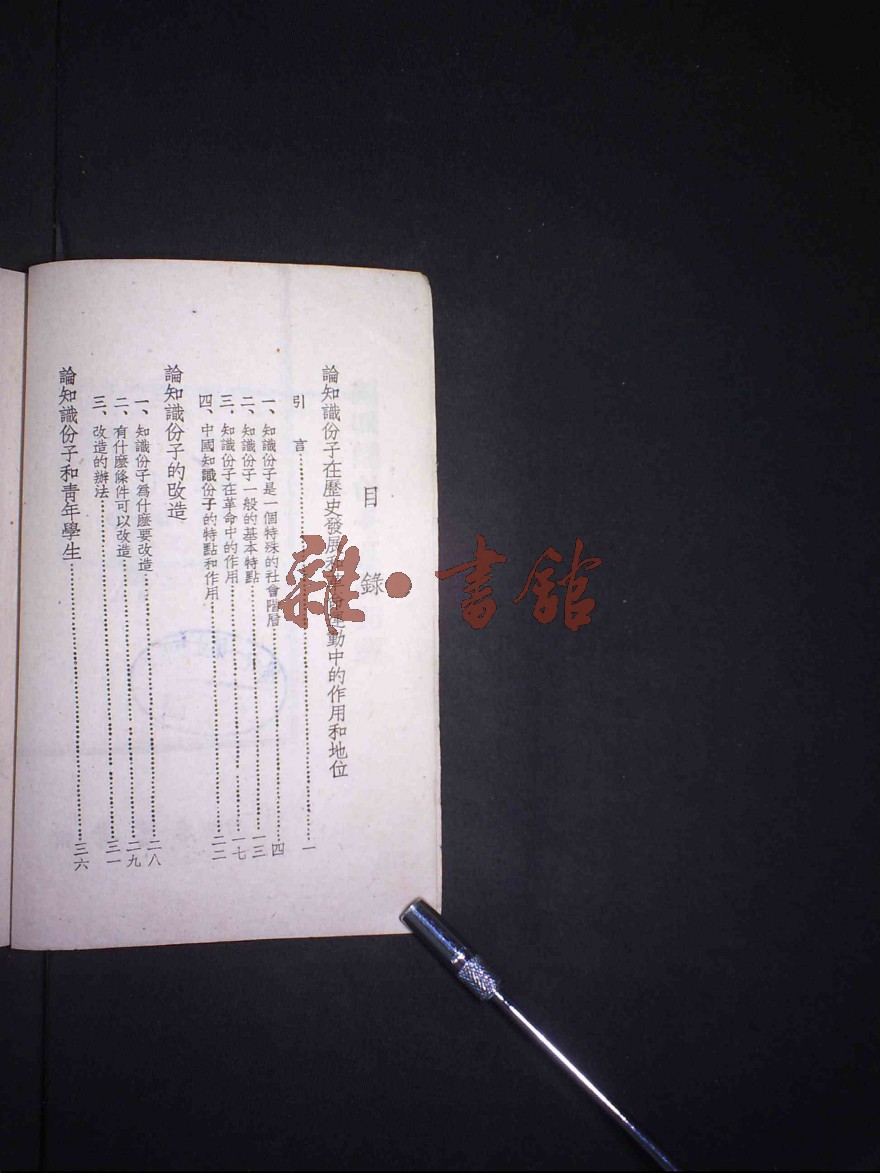 目錄
論知識份子在歷史發展和革命運動中的作用和地位
引言……一
一、知識份子是一個特殊的社會階層……四
二、知識份子一般的基本特點……一三
三、知識份子在革命中的作用……一七
四、中國知識份子的特點和作用……二二
論知識份子的改造
一、知識份子爲什麽要改造……二八
二、有什麽條件可以改造……二九
三、改造的辦法……三一
論知識份子和靑年學生……三六
雜·書館